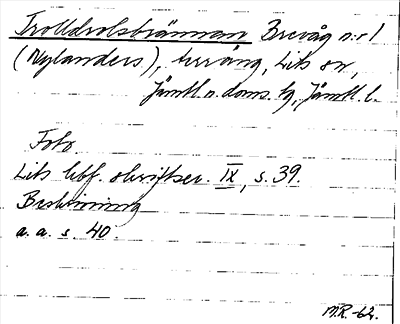 Trolldrolsbrännan Brevåg n:r 1
(Nylanders), Lits sn,
Jämtl. n. doms. tg, Jämtl. l.
Foto
Lits hbf. skriftser. IX, s. 39.
Beskrivning
a. a. s. 40.
M.R. -62.